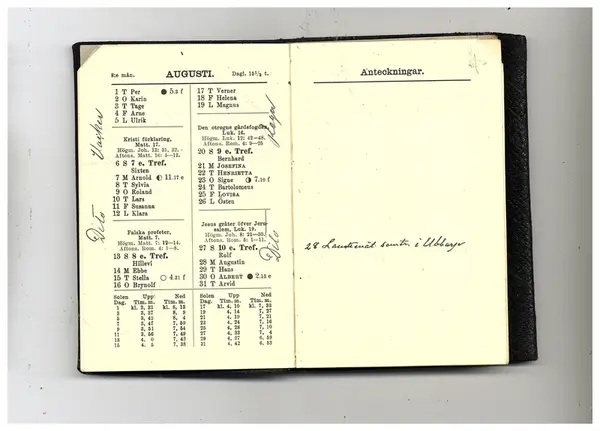 8:e mån. AUGUSTI. Dagl. 15½ t.
1 T Per ● 5.3 f
2 O Karin
3 T Tage
4 F Arne
5 L Ulrik
Kristi förklaring,
Matt. 17.
Högm. Joh. 12: 31, 32.
Aftons. Matt. 16: 5—12.
6 S 7 e. Tref.
Sixten
7 M Arnold ◐ 11.17 e
8 T Sylvia
9 O Roland
10 T Lars
11 F Susanna
12 L Klara
Falska profeter,
Matt. 7.
Högm. Matt. 7: 12—14.
Aftons. Rom. 4: 1—8.
13 S 8 e. Tref.
Hillevi
14 M Ebbe
15 T Stella ○ 4.21 f
16 O Brynolf
Solen Upp Ned
Dag. Tim. m. Tim. m.
1 kl. 3, 31 kl. 8, 13
3 3, 37 8, 9
5 3, 42 8, 4
7 3, 47 7, 59
9 3, 51 7, 54
11 3, 56 7, 49
13 4, 0 7, 43
15 4, 5 7, 38
17 T Verner
18 F Helena
19 L Magnus
Den otrogne gårdsfogden,
Luk. 16.
Högm. Luk. 12: 42—48.
Aftons. Rom. 4: 9—25
20 S 9 e. Tref.
Bernhard
21 M JOSEFINA
22 T HENRIETTA
23 O Signe ◑ 7.10 f
24 T Bartolomeus
25 F LOVISA
26 L Östen
Jesus gråter öfver Jeru-
salem, Luk. 19.
Högm. Joh. 8: 21—30.
Aftons. Rom. 5: 1—11.
27 S 10 e. Tref.
Rolf
28 M Augustin
29 T Hans
30 O ALBERT ● 2.15 e
31 T Arvid
Solen Upp Ned
Dag. Tim. m. Tim. m.
17 kl. 4, 10 kl. 7, 33
19 4, 14 7, 27
21 4, 19 7, 21
23 4, 24 7, 16
25 4, 28 7, 10
27 4, 33 7, 4
29 4, 37 6, 59
31 4, 42 6, 53
Vacker
Dito
Dito
Anteckningar.
28 Landtmät